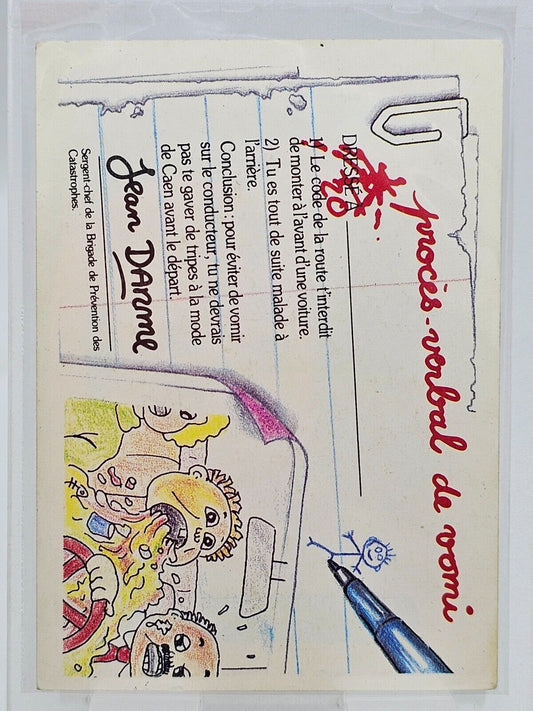 procès-verbal de vomi
DRESSÉ A
1) Le code de la route t'interdit
de monter à l'avant d'une voiture.
2) Tu es tout de suite malade à
l'arrière.
Conclusion : pour éviter de vomir
sur le conducteur, tu ne devrais
pas te gaver de tripes à la mode
de Caen avant le départ.
Jean DARME
Sergent-chef de la Brigade de Prévention des
Catastrophes.